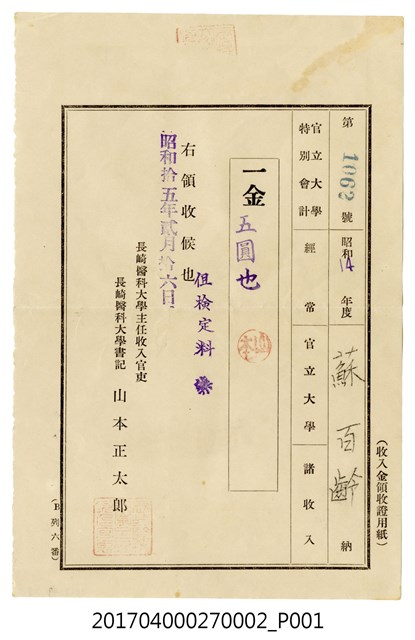 第1062號 昭和14年度 蘇百齡 納
官立大學特別會計 經常 官立大學 諸收入
一金五圓也
但檢定料
右領收候也
昭和拾五年貳月拾六日
長崎醫科大學主任收入官吏
長崎醫科大學書記 山本正太郎
(收入金領收證用紙)
(B列六番)
201704000270002_P001